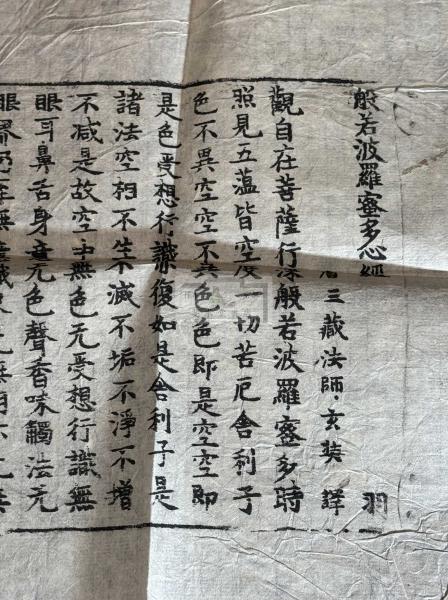 般若波羅蜜多心經 羽
三藏法師玄奘譯
觀自在菩薩行深般若波羅蜜多時
照見五蕴皆空度一切苦厄舍利子
色不異空空不異色色即是空空即
是色受想行識復如是舍利子是
諸法空相不生不滅不垢不淨不增
不减是故空中無色无受想行識無
眼耳鼻舌身意无色聲香味觸法无
眼界乃至無意識界无無明亦无無